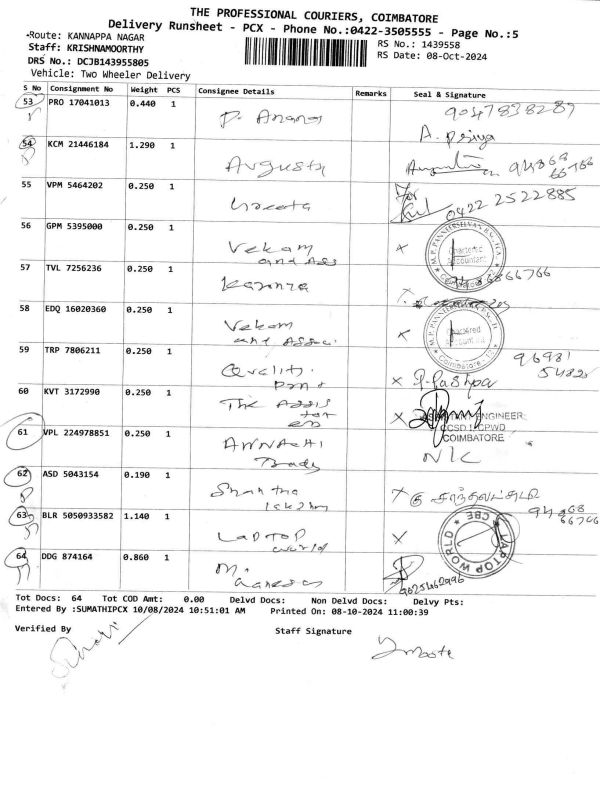 THE PROFESSIONAL COURIERS, COIMBATORE
Delivery Runsheet - PCX - Phone No.:0422-3505555 - Page No.:5
Route: KANNAPPA NAGAR
RS No.: 1439558
Staff: KRISHNAMOORTHY
RS Date: 08-Oct-2024
DRS No.: DCJB143955805
Vehicle: Two Wheeler Delivery
S No Consignment No Weight PCS Consignee Details Remarks Seal & Signature
53 PRO 17041013 0.440 1 9047838289
P. Anand
A. Priya
54 KCM 21446184 1.290 1
Augusta
55 VPM 5464202 0.250 1 For
0422 2522885
56 GPM 5395000 0.250 1
Vekam
and Ass
Chartered
Accountant
57 TVL 7256236 0.250 1
58 EDQ 16020360 0.250 1
Vekam
and Associ
Chartered
Accountant
Coimbatore
59 TRP 7806211 0.250 1
Quality
Print
P. Pushpa
60 KVT 3172990 0.250 1
The Assis
tant
ENGINEER
CCSD I, CPWD
COIMBATORE
61 VPL 224978851 0.250 1
N/C
62 ASD 5043154 0.190 1
Shantha
63 BLR 5050933582 1.140 1
LAPTOP
World
LAPTOP WORLD
CBE
64 DDG 874164 0.860 1
M.
9025462996
Tot Docs: 64 Tot COD Amt: 0.00 Delvd Docs: Non Delvd Docs: Delvy Pts:
Entered By :SUMATHIPCX 10/08/2024 10:51:01 AM Printed On: 08-10-2024 11:00:39
Verified By
Staff Signature